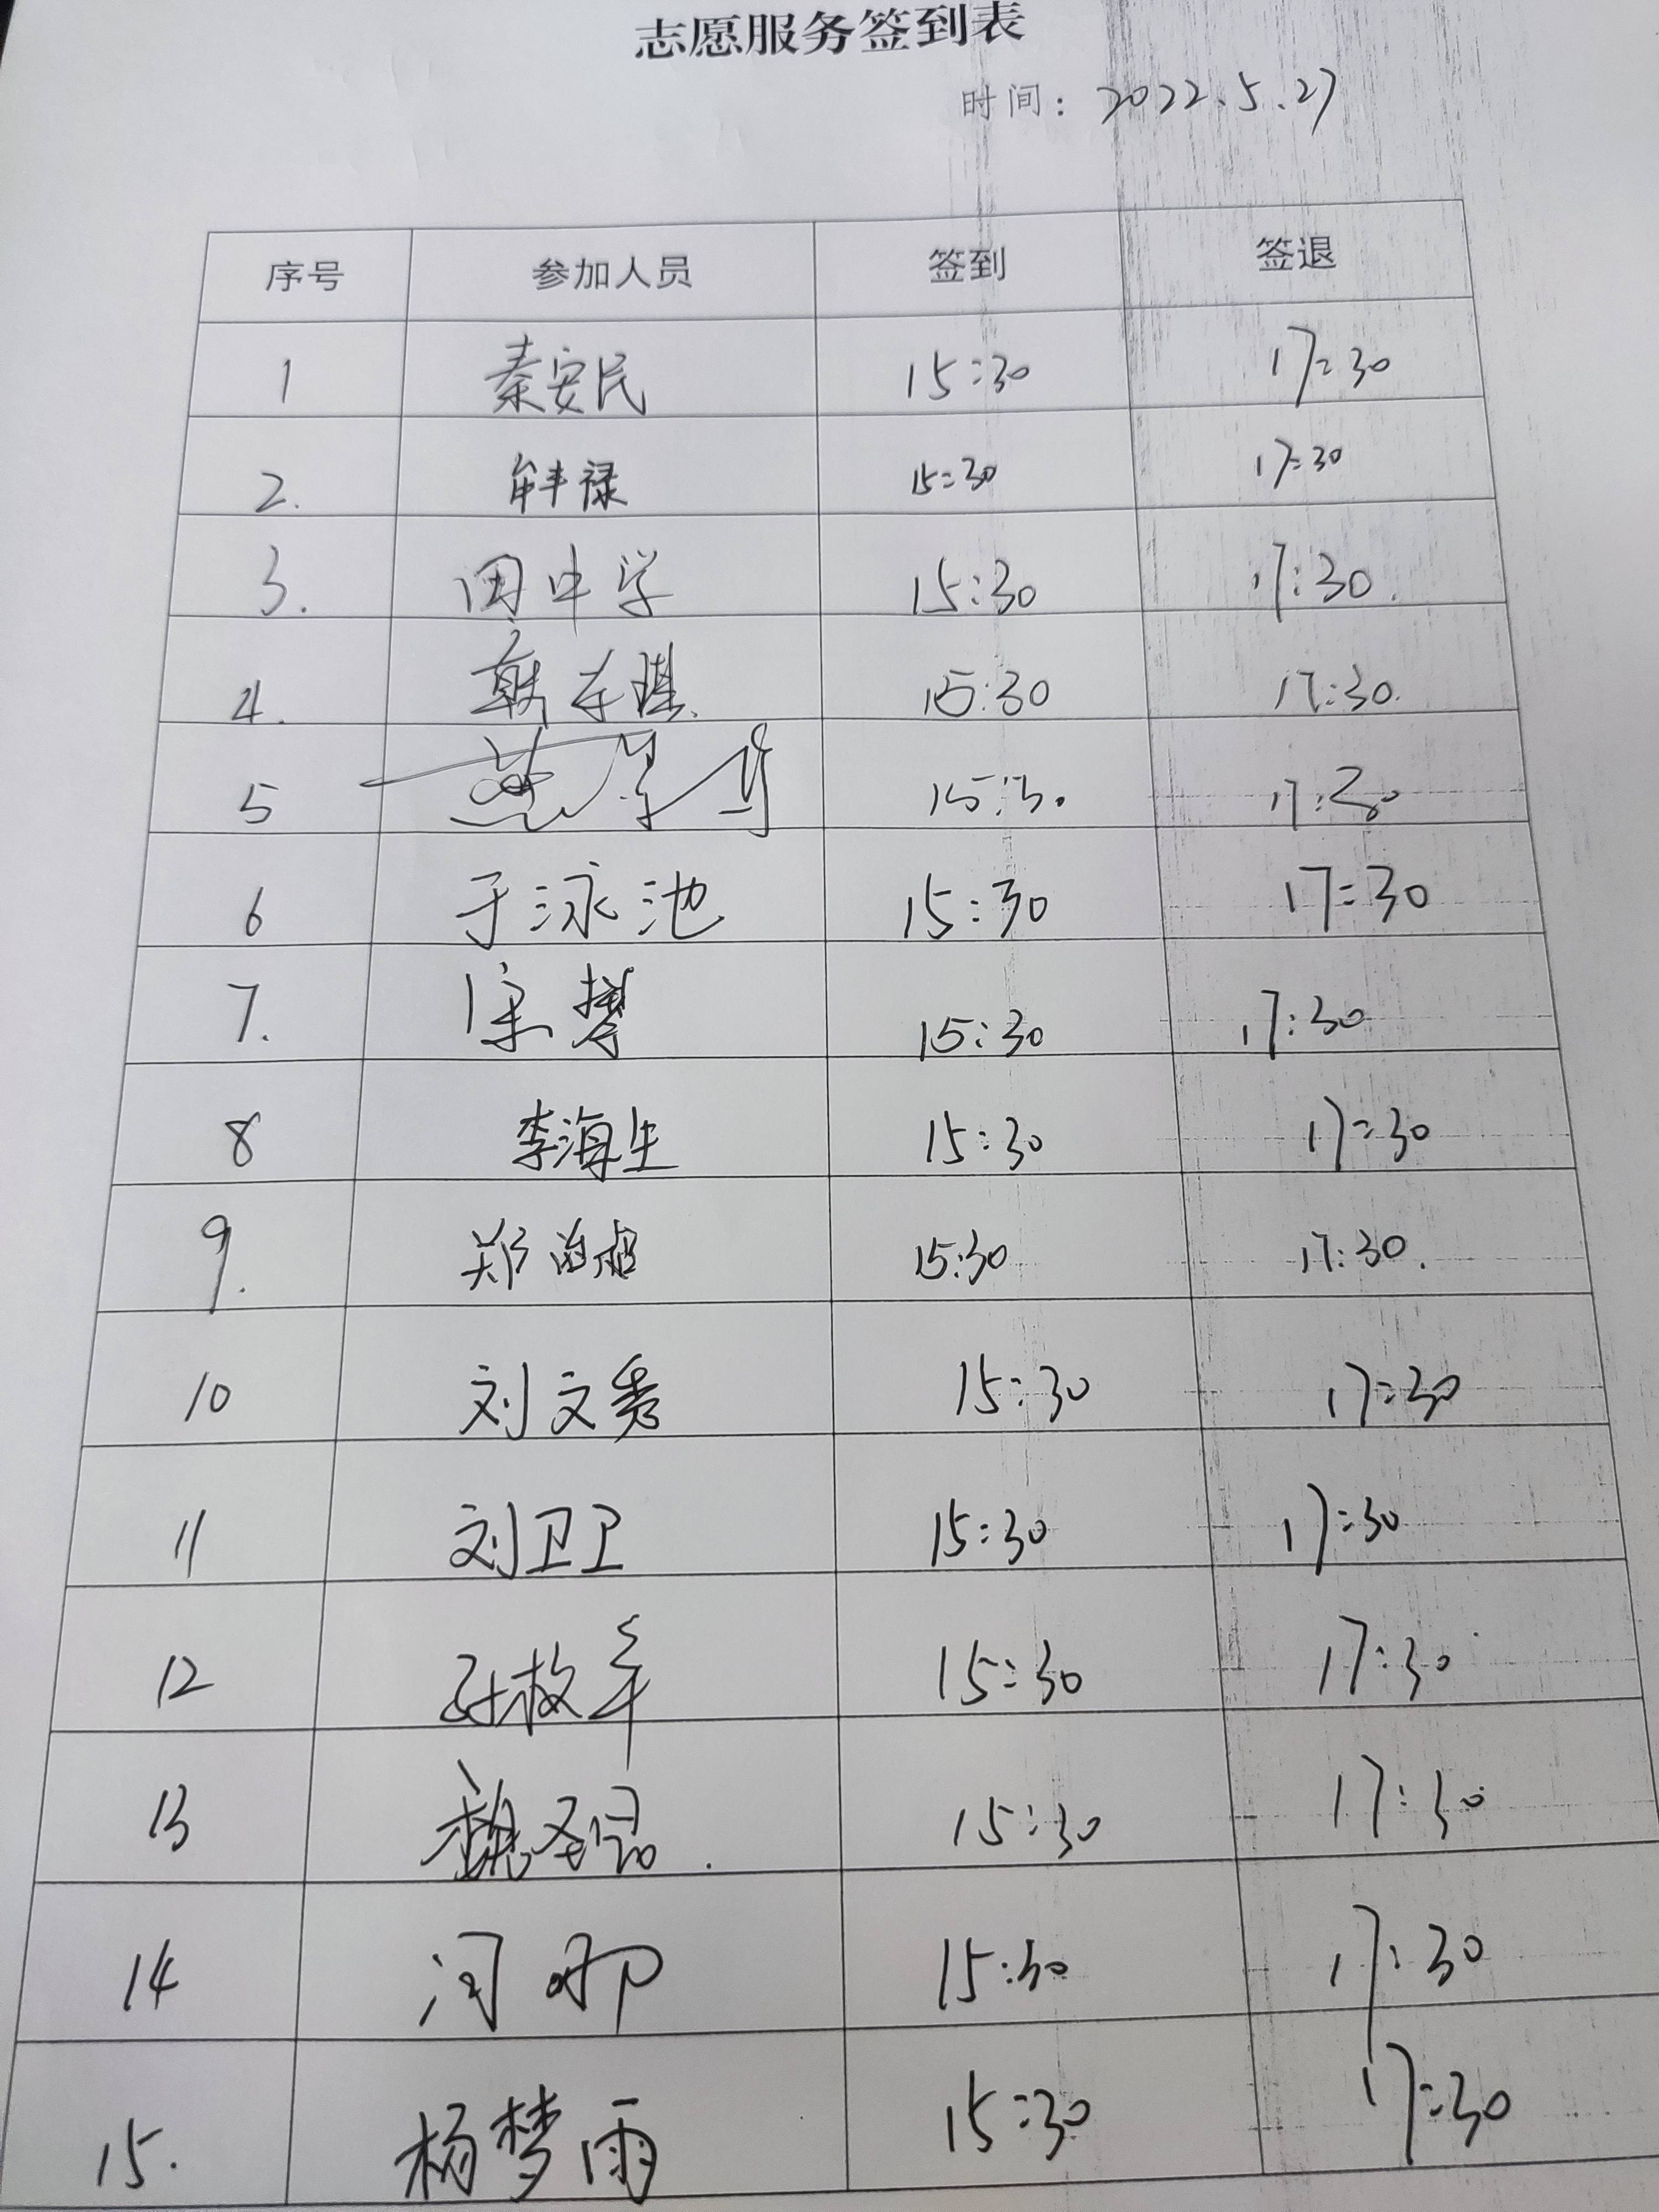 志愿服务签到表
时间：2022.5.27
序号 参加人员 签到 签退
1 秦安民 15:30 17:30
2. 禄 15:30 17:30
3. 田中学 15:30 17:30.
4. 15:30 17:30.
5 15:30 17:30
6 于泳池 15:30 17:30
7. 15:30 17:30
8 李海生 15:30 17:30
9. 郑 15:30 17:30.
10 刘文秀 15:30 17:30
11 刘卫卫 15:30 17:30
12 孙 15:30 17:30
13 魏 15:30 17:30
14 闫 15:30 17:30
15. 杨梦雨 15:30 17:30